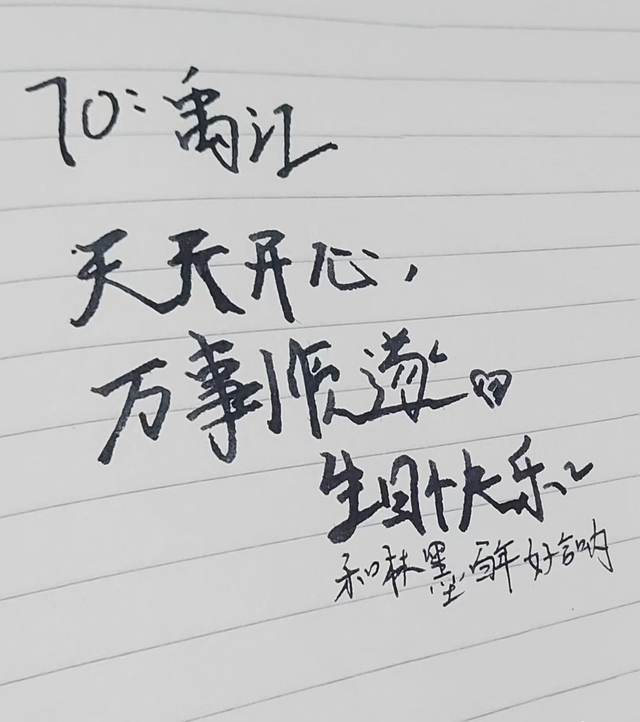 TO: 禹江
天天开心，
万事顺遂♡
生日快乐~
和林墨百年好合呐